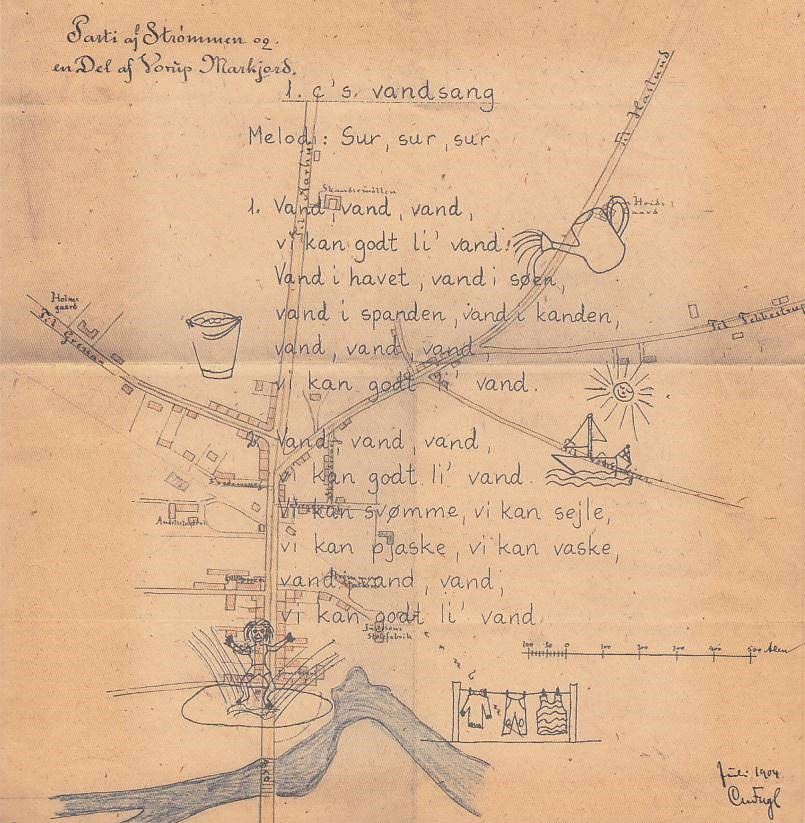 Parti af Strømmen og
en Del af Vorup Markjord.
1. c's vandsang
Melodi: Sur, sur, sur
Til Aarhus
Til Haslund
Skandsemøllen
1. Vand, vand, vand,
vi kan godt li' vand!
Vand i havet, vand i søen,
vand i spanden, vand i kanden,
vand, vand, vand,
vi kan godt li' vand.
Holmgaard
Til
Til
2. Vand, vand, vand,
vi kan godt li' vand.
Vi kan svømme, vi kan sejle,
vi kan pjaske, vi kan vaske,
vand, vand, vand,
vi kan godt li' vand.
100 50 0 100 200 300 400 500 Alen
Juli 1904